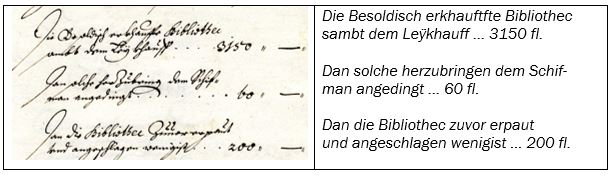 Die Besoldisch erkhauffte Bibliothec
sambt dem Leÿkhauff . . . . 3150 „ —
Dan solche herzubringen dem Schif-
man angedingt . . . . . . . 60 „ —
Dan die Bibliothec Zuvor erpaut
und angeschlagen wenigist . . . . 200 „ —
Die Besoldisch erkhauftfte Bibliothec
sambt dem Leÿkhauff ... 3150 fl.
Dan solche herzubringen dem Schif-
man angedingt ... 60 fl.
Dan die Bibliothec zuvor erpaut
und angeschlagen wenigist ... 200 fl.